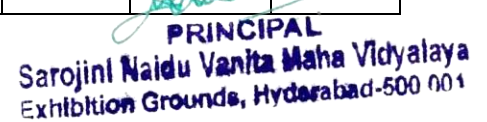 PRINCIPAL
Sarojini Naidu Vanita Maha Vidyalaya
Exhibition Grounds, Hyderabad-500 001